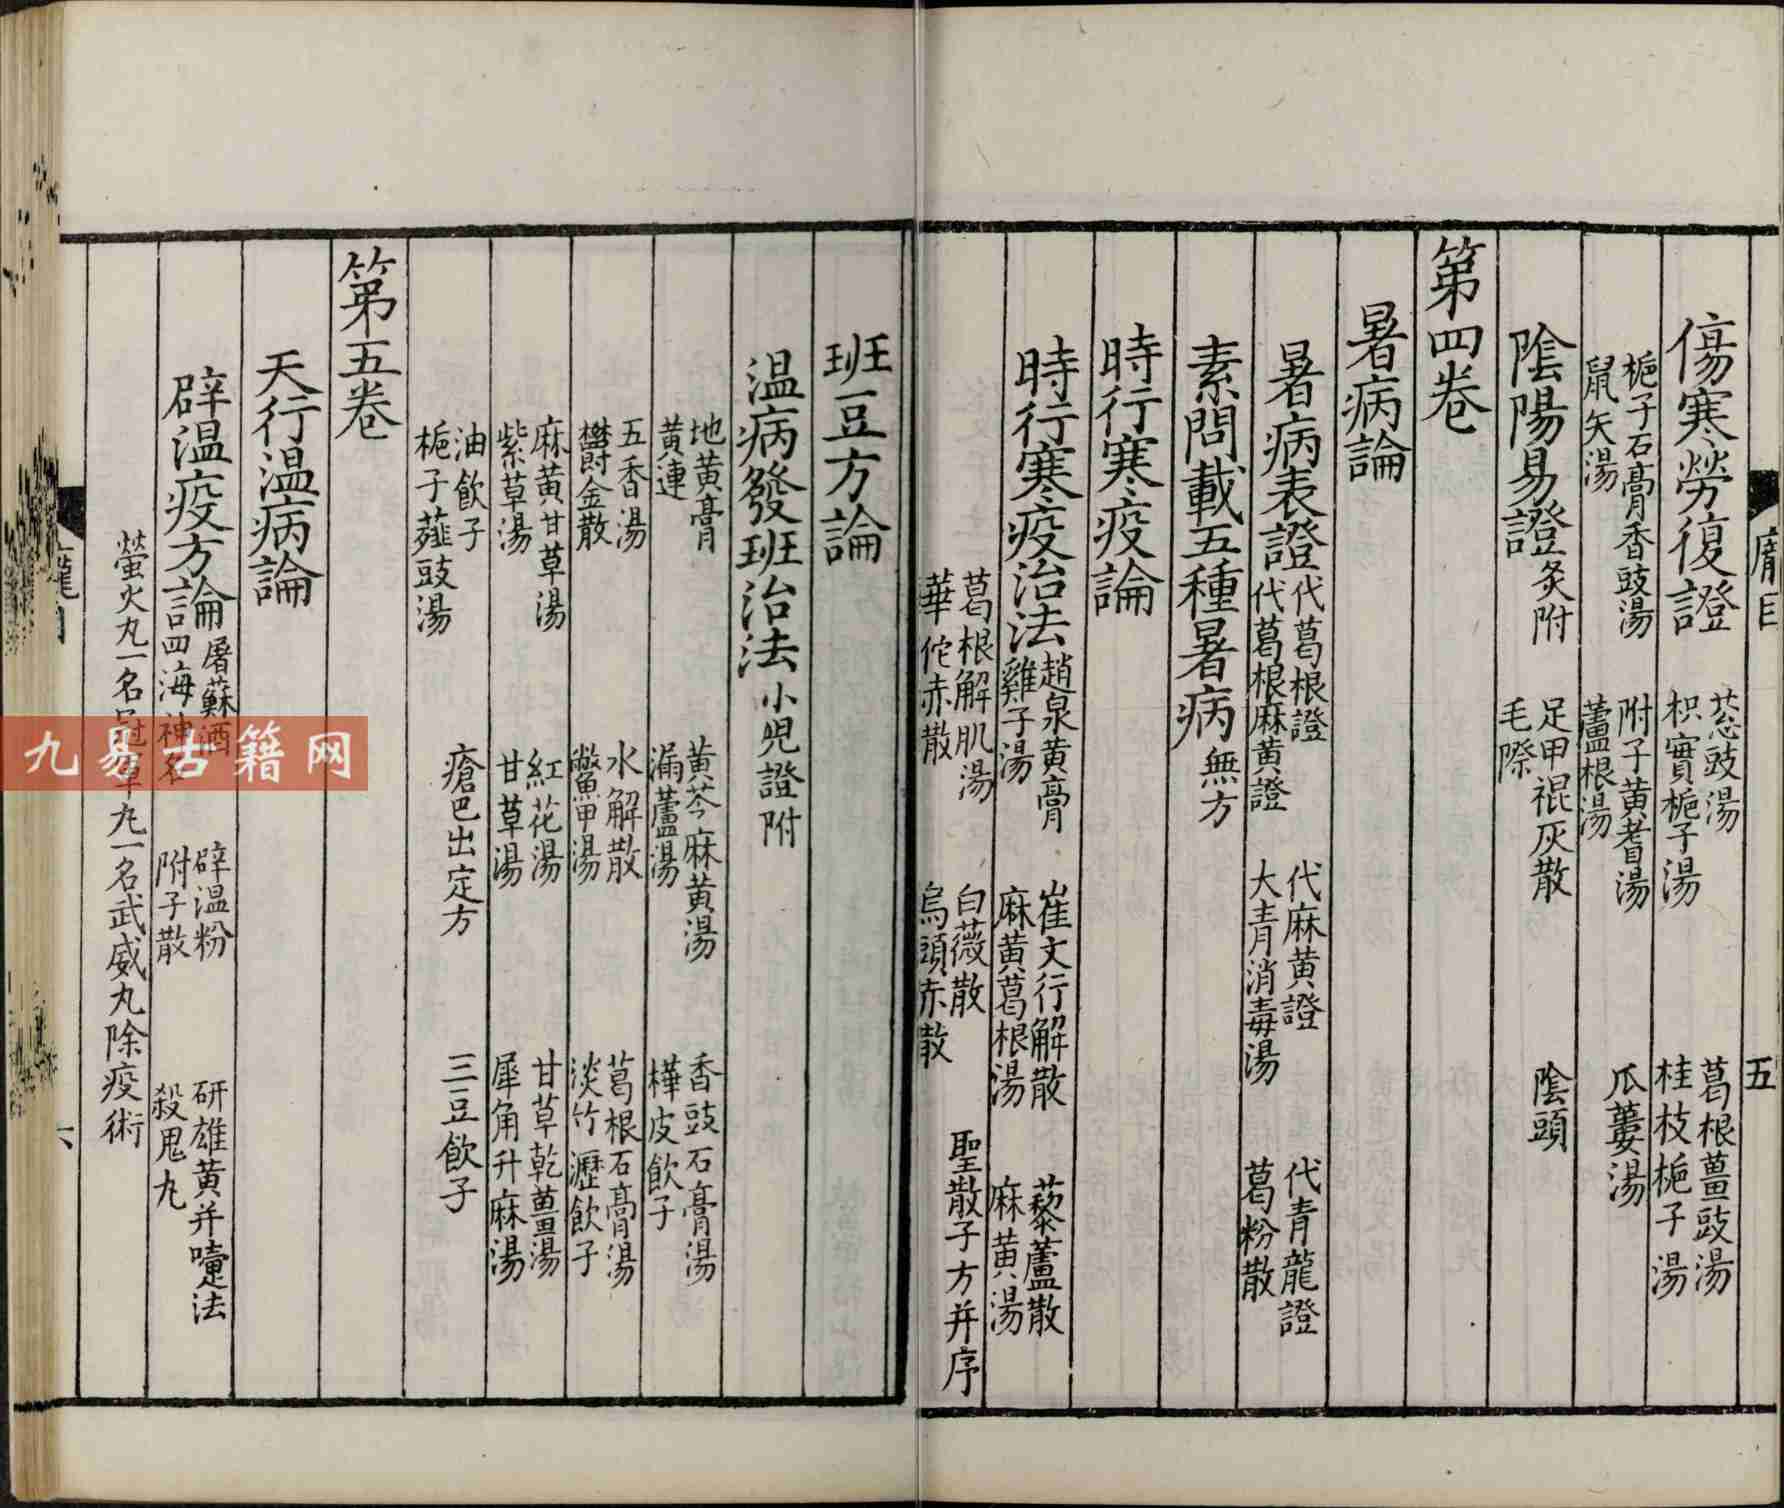 龐目 五
傷寒勞復證 葱豉湯 葛根薑豉湯
枳實梔子湯 桂枝梔子湯
梔子石膏香豉湯 附子黃耆湯 瓜蔞湯
鼠矢湯 蘆根湯
陰陽易證 灸附 足甲 裩灰散 陰頭
毛際
第四卷
暑病論
暑病表證 代葛根證 代麻黃證 代青龍證
代葛根麻黃證 大青消毒湯 葛粉散
素問載五種暑病 無方
時行寒疫論
時行寒疫治法 趙泉黃膏 崔文行解散 藜蘆散
雞子湯 麻黃葛根湯 麻黃湯
葛根解肌湯 白薇散 聖散子方并序
華佗赤散 烏頭赤散
斑豆方論
温病發斑治法 小兒證附
地黃膏 黃芩麻黃湯 香豉石膏湯
黃連 漏蘆湯 樺皮飲子
五香湯 水解散 葛根石膏湯
欝金散 鱉甲湯 淡竹瀝飲子
麻黃甘草湯 紅花湯 甘草乾薑湯
紫草湯 甘草湯 犀角升麻湯
油飲子 瘡巴出定方 三豆飲子
梔子薤豉湯
第五卷
天行温病論
辟温疫方論 屠蘇酒 辟温粉 研雄黃并嚏法
四海神名 附子散 殺鬼丸
螢火丸一名冠軍丸一名武威丸 除疫術
六
九易古籍网